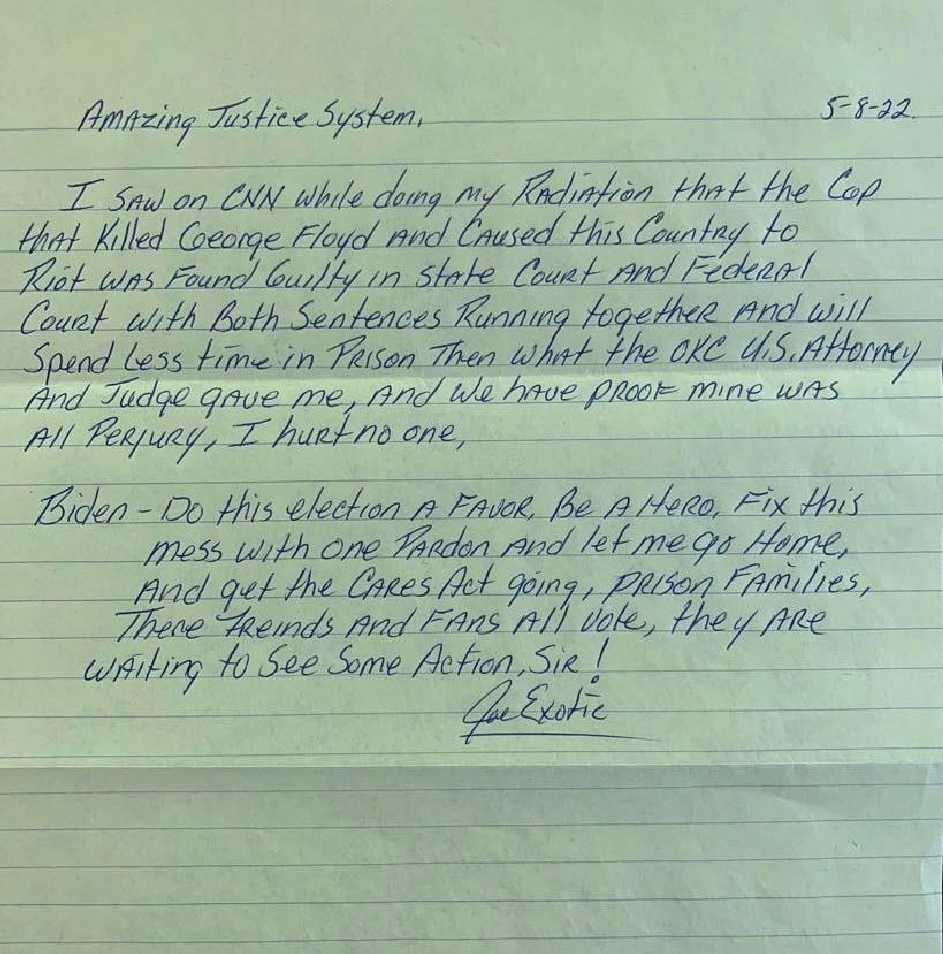 Amazing Justice System,
5-8-22.
I saw on CNN while doing my Radiation that the Cop
that Killed Goeorge Floyd and Caused this Country to
Riot was Found Guilty in State Court and Federal
Court with Both Sentences Running together and will
Spend less time in Prison Then what the OKC U.S. Attorney
And Judge gave me, and we have PROOF mine was
All Perjury, I hurt no one,
Biden - Do this election a Favor, Be a Hero, Fix this
mess with one Pardon and let me go Home,
And get the Cares Act going, prison Families,
There Freinds and Fans All vote, they are
waiting to See Some Action, Sir!
Joe Exotic